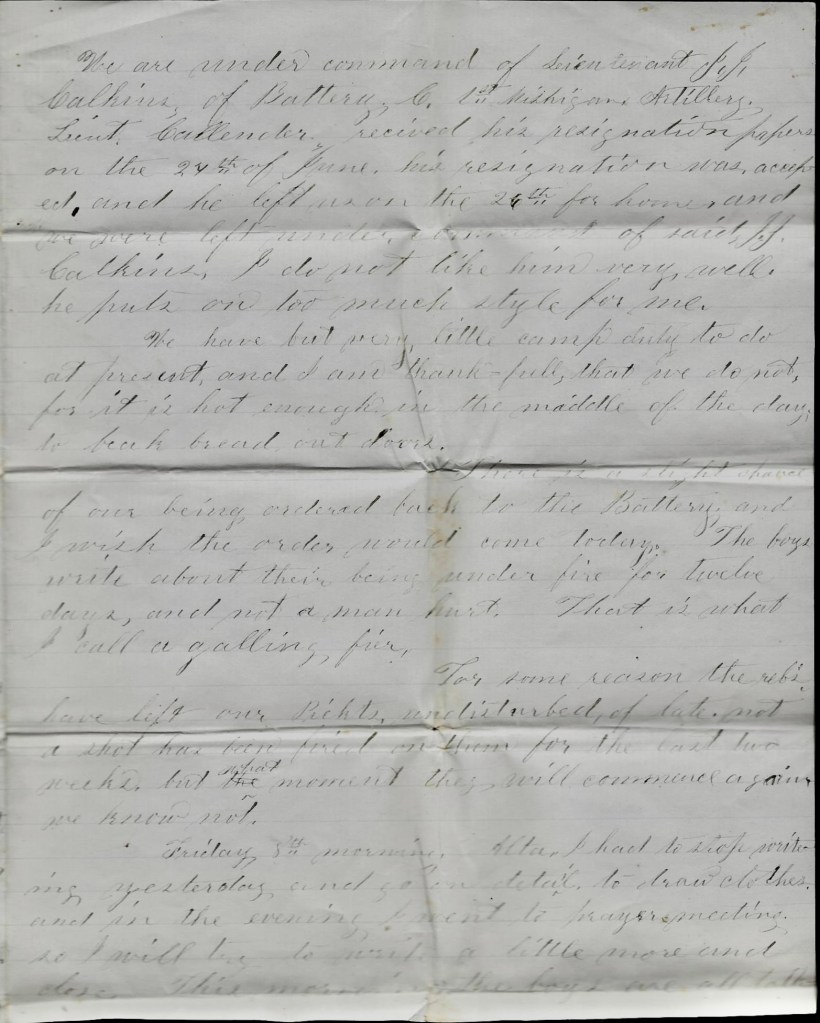 We are under command of Lieutenant J. J.
Calkins, of Battery, C. 1st Mishigan. Artillery.
Lieut. Callender, recived his resignation papers
on the 24th of June. his resignation was, accep
ed, and he left us on the 26th for home, and
we were left under, command of said, J. J.
Calkins, I do not like him very, well.
he puts on too much style for me.
We have but very, little camp duty to do
at present, and I am thank-full, that we do not,
for it is hot enough in the middle of the day,
to beak bread out doors.
There is a slight chance
of our being ordered back to the Battery, and
I wish the order would come today. The boys
write about their being under fire for twelve
days, and not a man hurt. That is what
I call a galling, fier,
For some reason the rebs
have left our Pickts, undisturbed, of late. not
a shot has ben fired on them for the last two
weeks. but the what moment they will commence again
we know not.
Friday 8th morning. Alta, I had to stop write-
ing yesterday and go on detail. to draw clothes.
and in the evening I went to prayer meeting.
so I will try to write a little more and
close. This morning the boys are all